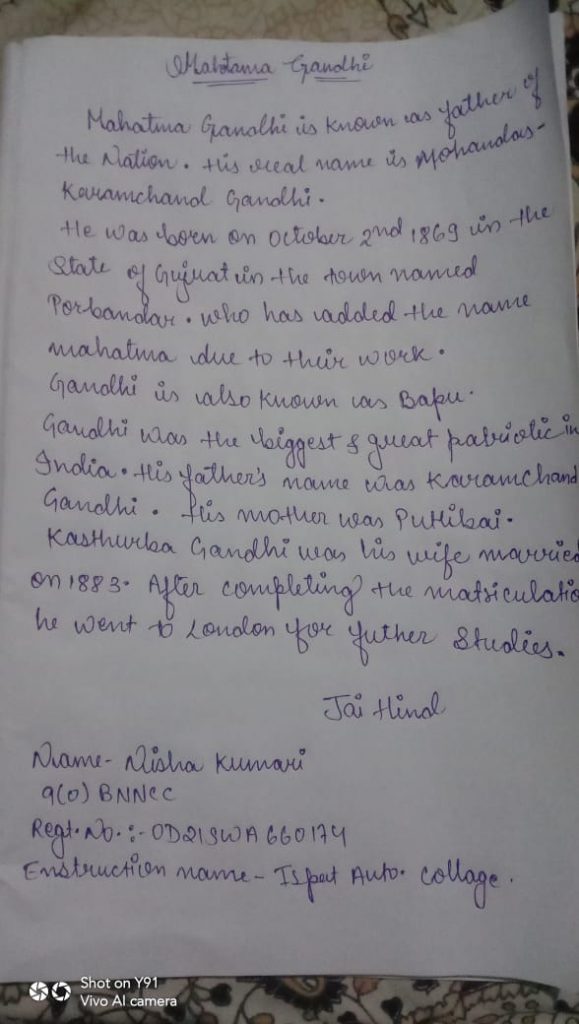 Mahatama Gandhi
Mahatma Gandhi is known as father of
the Nation. His real name is Mohandas-
Karamchand Gandhi.
He was born on October 2nd 1869 in the
State of Gujuat in the town named
Porbandar. who has added the name
mahatma due to their work.
Gandhi is also known as Bapu.
Gandhi was the biggest & great patriotic in
India. His father's name was Karamchand
Gandhi. His mother was Putlibai.
Kasthurba Gandhi was his wife married
on 1883. After completing the matriculatio
he went to London for futher Studies.
Jai Hind
Name- Nisha Kumari
9(O) BNNCC
Regt. No. :- OD21SWA660174
Enstruction name - Ispat Auto. collage.
Shot on Y91
Vivo AI camera